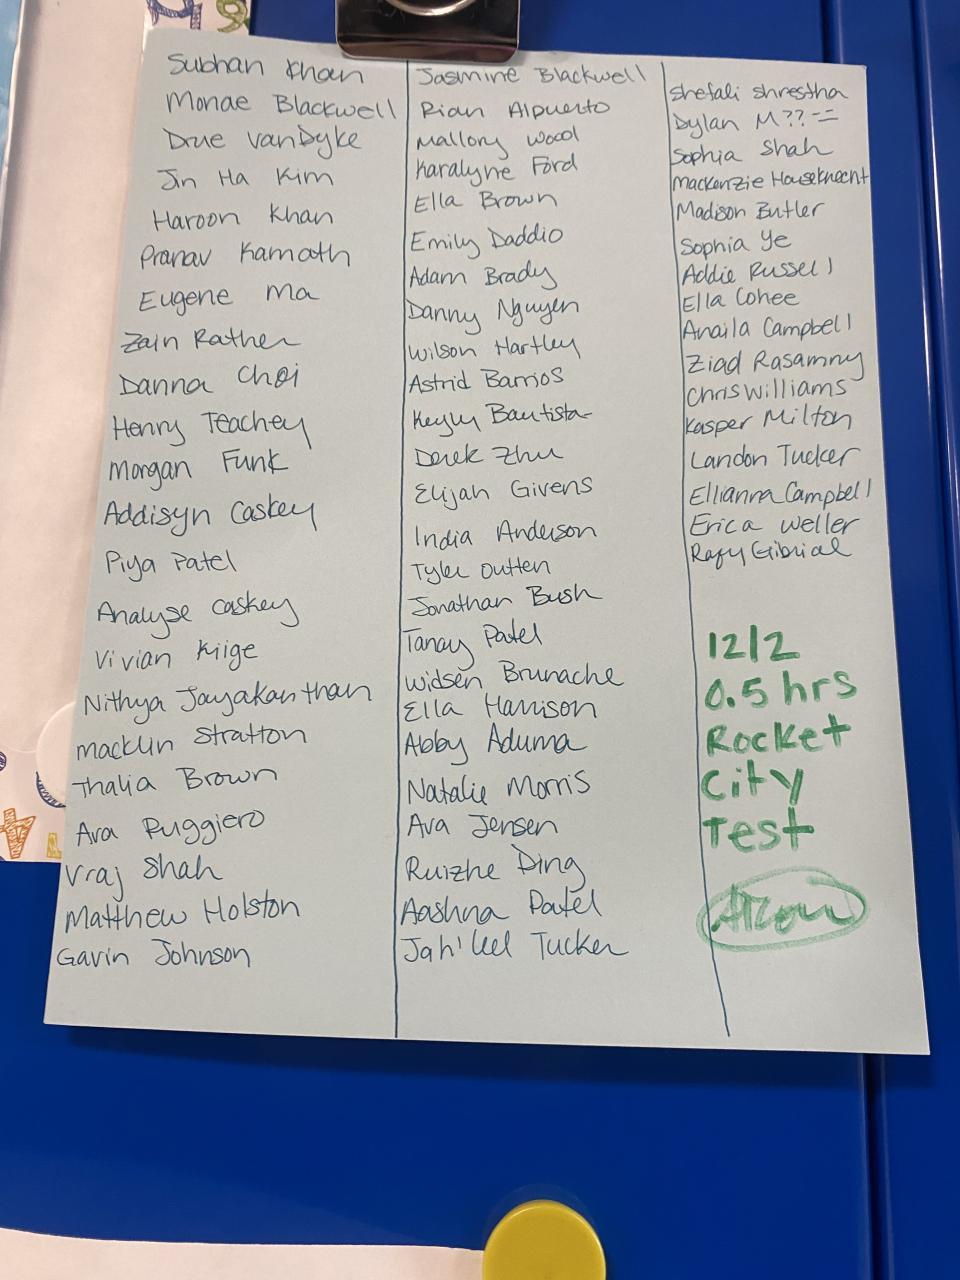 Subhan Khan
Monae Blackwell
Drue VanDyke
Jin Ha Kim
Haroon Khan
Pranav Kamath
Eugene Ma
Zain Rather
Danna Choi
Henry Teachey
Morgan Funk
Addisyn Caskey
Piya Patel
Analyse Caskey
Vivian Kiige
Nithya Jayakanthan
Macklin Stratton
Thalia Brown
Ava Ruggiero
Vraj Shah
Matthew Holston
Gavin Johnson
Jasmine Blackwell
Rian Alpuerto
Mallory Wood
Karalyne Ford
Ella Brown
Emily Daddio
Adam Brady
Danny Nguyen
Wilson Hartley
Astrid Barrios
Bautista
Derek Zhu
Elijah Givens
India Anderson
Tyler Outten
Jonathan Bush
Tanay Patel
Widsen Brunache
Ella Harrison
Abby Aduma
Natalie Morris
Ava Jensen
Ruizhe Ding
Aashna Patel
Tucker
Shefali Shrestha
Dylan M??--
Sophia Shah
Mackenzie Houseknecht
Madison Butler
Sophia Ye
Addie Russell
Ella Cohee
Anaila Campbell
Ziad Rasamny
Chris Williams
Kasper Milton
Landon Tucker
Ellianna Campbell
Erica Weller
Rafy Gibrial
12/2
0.5 hrs
Rocket
City
Test